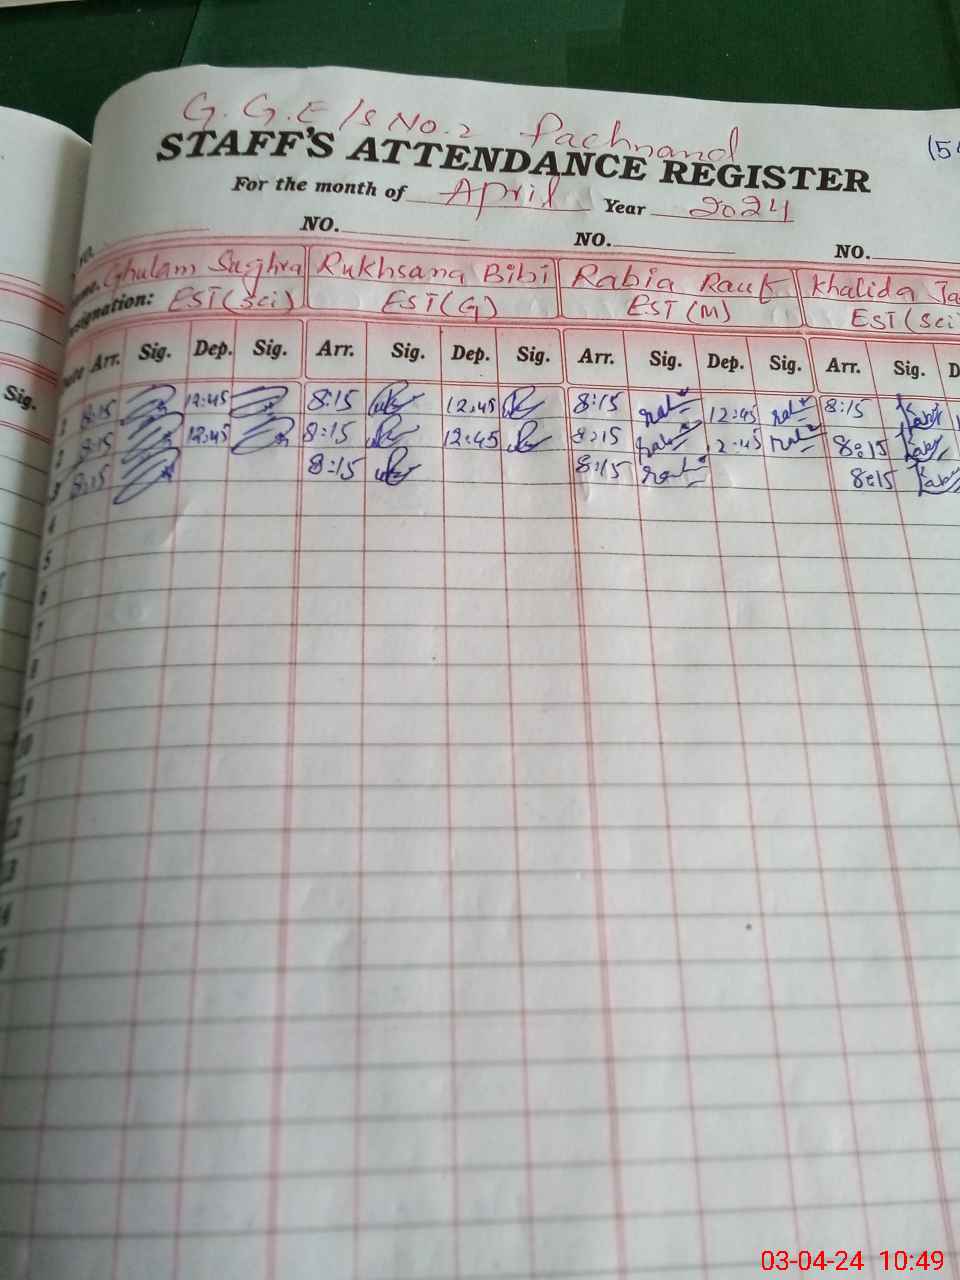 G.G.E/s No.2 Pachnand
(54
STAFF'S ATTENDANCE REGISTER
For the month of April Year 2024
NO. NO. NO. NO.
Ghulam Sughra Rukhsana Bibi Rabia Rauf Khalida Ja
Designation: EST(Sci) EST(G) EST(M) EST(Sci
Sig. Date Arr. Sig. Dep. Sig. Arr. Sig. Dep. Sig. Arr. Sig. Dep. Sig. Arr. Sig. D
1 8:15 12:45 8:15 12:45 8:15 12:45 8:15
2 8:15 12:45 8:15 12:45 8:15 2:45 8:15
3 8:15 8:15 8:15 8:15
4
5
6
7
8
9
10
11
12
13
14
03-04-24 10:49